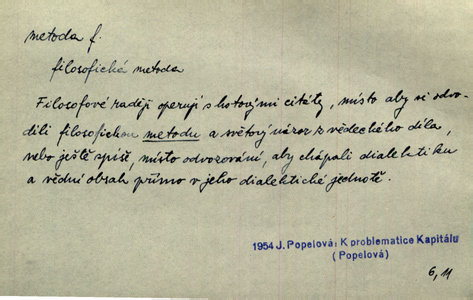 metoda f.
filosofická metoda
Filosofové raději operují s hotovými citáty, místo aby si odvo-
dili filosofickou metodu a světový názor z vědeckého díla,
nebo ještě spíše, místo odvozování, aby chápali dialektiku
a vědní obsah přímo v jeho dialektické jednotě.
1954 J. Popelová: K problematice Kapitálu
(Popelová)
6, 11